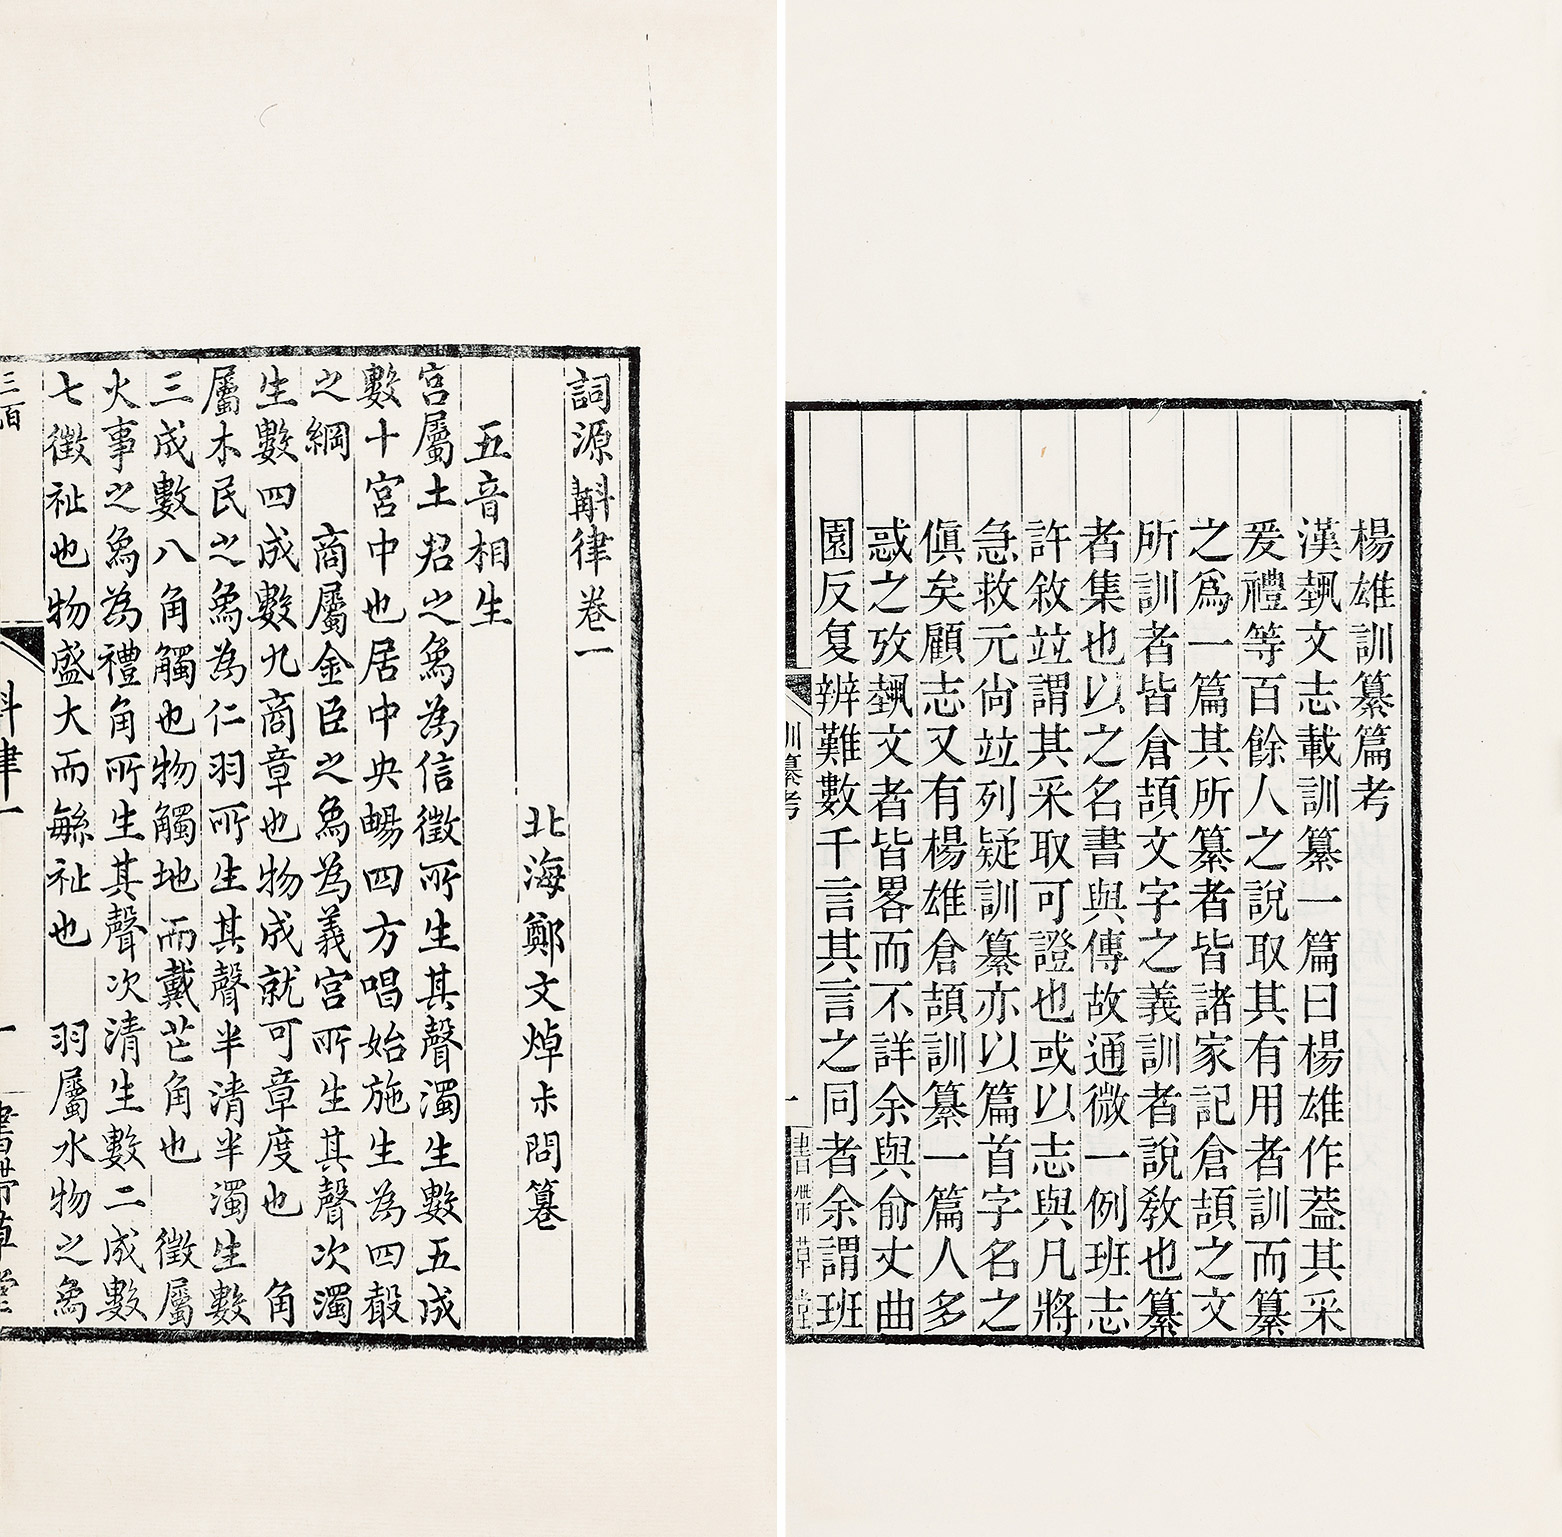 詞源斠律卷一
北海鄭文焯尗問籑
五音相生
宮屬土君之象為信徵所生其聲濁生數五成
數十宮中也居中央暢四方唱始施生為四聲
之綱　商屬金臣之象為義宮所生其聲次濁
生數四成數九商章也物成就可章度也　角
屬木民之象為仁羽所生其聲半清半濁生數
三成數八角觸也物觸地而戴芒角也　徵屬
火事之象為禮角所生其聲次清生數二成數
七徵祉也物盛大而緐祉也　羽屬水物之象
斠律一　一　書帶草堂
楊雄訓纂篇考
漢蓺文志載訓纂一篇曰楊雄作葢其采
爰禮等百餘人之說取其有用者訓而纂
之爲一篇其所纂者皆諸家記倉頡之文
所訓者皆倉頡文字之義訓者說教也纂
者集也以之名書與傳故通微一例班志
許敘竝謂其采取可證也或以志與凡將
急救元尙竝列疑訓纂亦以篇首字名之
傎矣顧志又有楊雄倉頡訓纂一篇人多
惑之攷蓺文者皆畧而不詳余與俞丈曲
園反复辨難數千言其言之同者余謂班
訓纂考　一　書帶草堂